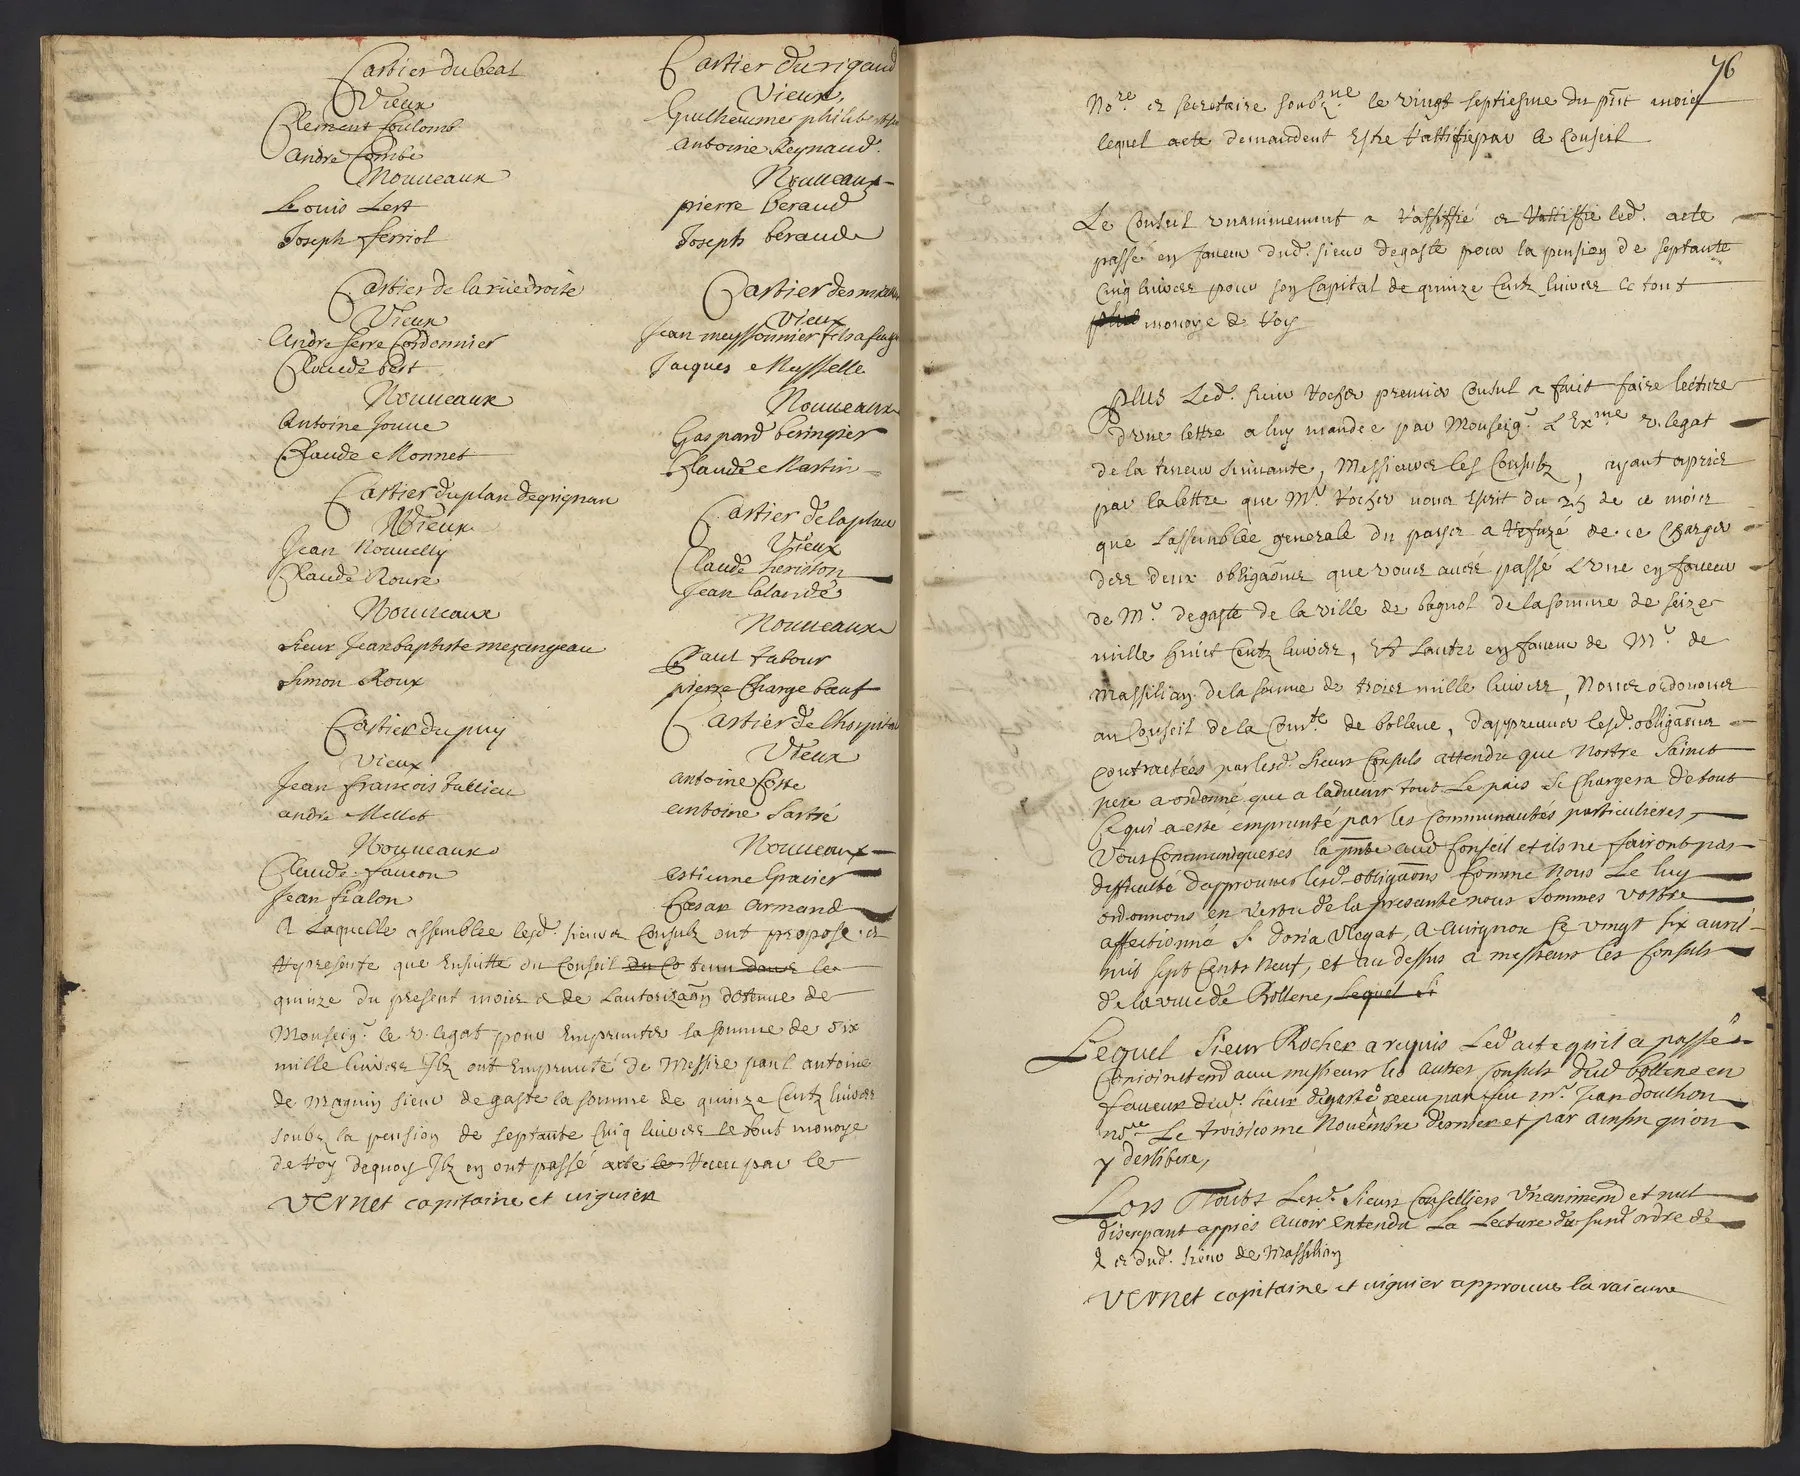 Cartier du beal
Vieux
Clement Coulomb
andré Combe
Nouueaux
Louis Lert
Joseph ferriol
Cartier de la rüe droite
Vieux
Andre serre Cordonnier
Claude best
Nouueaux
Antoine Jouue
Claude Monnet
Cartier du plan de grignan
Vieux
Jean Nouuelly
Claude Roure
Nouueaux
sieur Jean baptiste mezangeau
Simon Roux
Cartier du puy
Vieux
Jean françois Tallieu
andré Mellet
Nouueaux
Claude faucon
Jean fialon
Cartier du rigaud
Vieux
Guilheaume philib
antoine Reynaud
Nouueaux
pierre beraud
Joseph beraud
Cartier des
Vieux
Jean meyssonnier fils a feu
Jacques Meysselle
Nouueaux
Gaspard beringier
Claude Martin
Cartier de la plan
Vieux
Claude heriston
Jean lalande
Nouueaux
Paul tabour
pierre Charge bœuf
Cartier de l'hospital
Vieux
antoine Coste
antoine Sartre
Nouueaux
estienne Grauier
Cæsar Armand
A Laquelle assemblée lesd. sieurs Consulz ont proposé et
represente que Ensuitte du Conseil du Co tenu dans le
quinze du present mois et de Lautorizaōn obtenue de
Monseigr. le v. legat pour Emprunter la somme de six
mille liures Ilz ont Emprunté de Messire paul antoine
de Magnin sieur de gaste la somme de quinze Centz liures
soubz la pension de septante Cinq liures le tout monoye
de roy dequoy Ilz en ont passé acte le receu par le
VERNET capitaine et uiguier
76
Nore. et secretaire soubzne. le vingt septiesme du pnt mois
lequel acte demandent Estre rattiffie par le Conseil
Le Conseil vnanimement a rattiffié et rattiffie led. acte
passé en faueur dud. sieur degaste pour la pension de septante
Cinq liures pour son Capital de quinze Centz liures le tout
monoye de roy
Plus Led. sieur rocher premier Consul a fait faire lecture
d'vne lettre a luy mandée par Monseigr. L'Exme. v. legat
de la teneur suiuante, Messieurs les Consulz, ayant apris
par la lettre que Mr. rocher nous Escrit du 25 de ce mois
que Lassemblée generale du paÿs a refuzé de ce Charger
des deux obligaōns que vous aués passé L'vne en faueur
de Mr. degaste de la ville de bagnol de la somme de seize
mille huict Centz liures, Et Lautre en faueur de Mr. de
Massilian de la somme de trois mille liures, Nous ordonons
au Conseil de la Comte. de bollene, d'appreuuer lesd. obligaōns
contractées par lesd. sieurs Consuls attendu que Nostre Sainct
pere a ordonné que a laduenir tout Le païs se Chargera de tout
Ce qui a esté emprunté par les Communautés particulieres,
Vous Communiqueres la pnte aud Conseil et ils ne fairont pas
difficulté d'approuuer lesd. obligaōns Comme Nous Le luy
ordonnons en vertu de la presante nous sommes vostre
affectionné S. Doria Vlegat, A Auignon ce vingt six auril
mil sept Cents neuf, et au dessus a messieurs les Consuls
de la ville de Bollene, Lequel si
Lequel Sieur Rocher a requis Led acte qu'il a passé
Conioinctemt auec messieurs les autres Consuls dud bollene en
faueur dud. sieur degaste receu par feu mr. Jean doulhon
nore. Le troisieme Nouembre dernier et par ainsin qu'on
y deslibere,
Lors Touts Lesd. Sieurs Conselliers vnanimemt et nul
discrepant appres auoir entendu La Lecture du susd ordre de
& et dud. sieur de Massilian
VERNET capitaine et uiguier approuue la raieure